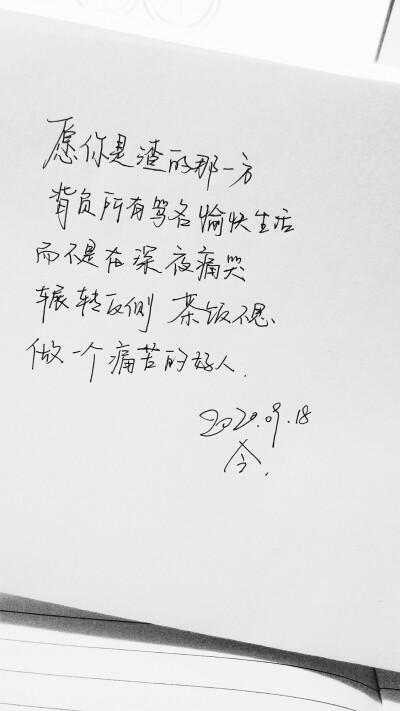 愿你是渣的那一方
背负所有骂名愉快生活
而不是在深夜痛哭
辗转反侧 茶饭不思
做一个痛苦的好人.
2020.09.18
今.